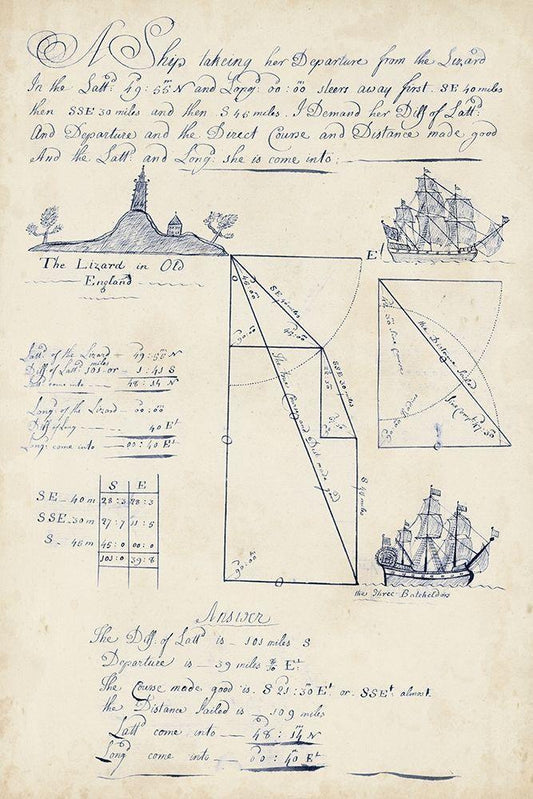 A Ship takeing her Departure from the Lizard
In the Latt:d 49:55 N and Long: 00:00 steers away first SE 40 miles
then SSE 30 miles and then S 45 miles. I Demand her Diff of Latt:
And Departure and the Direct Course and Distance made good
And the Latt:d and Long: she is come into:
The Lizard in Old
England
E:t
Latt:d of the Lizard 49:55 N
Diff of Latt:d 101 miles or 1:41 S
Latt:d come into 48:14 N
Long: of the Lizard 00:00
Diff of Long 40 E:t
Long: come into 00:40 E:t
S E
SE 40 m 28:3 28:3
SSE 30 m 27:7 11:5
S 45 m 45:0 00:0
101:0 39:8
SE 40 miles
SSE 30 miles
S 45 miles
the Three Batcheldors
Answer
The Diff: of Latt:d is 101 miles S
Departure is 39 miles E:t
The Course made good is S 21:30 E:t or SSE:t almost
the Distance sailed is 109 miles
Latt:d come into 48:14 N
Long come into 00:40 E:t